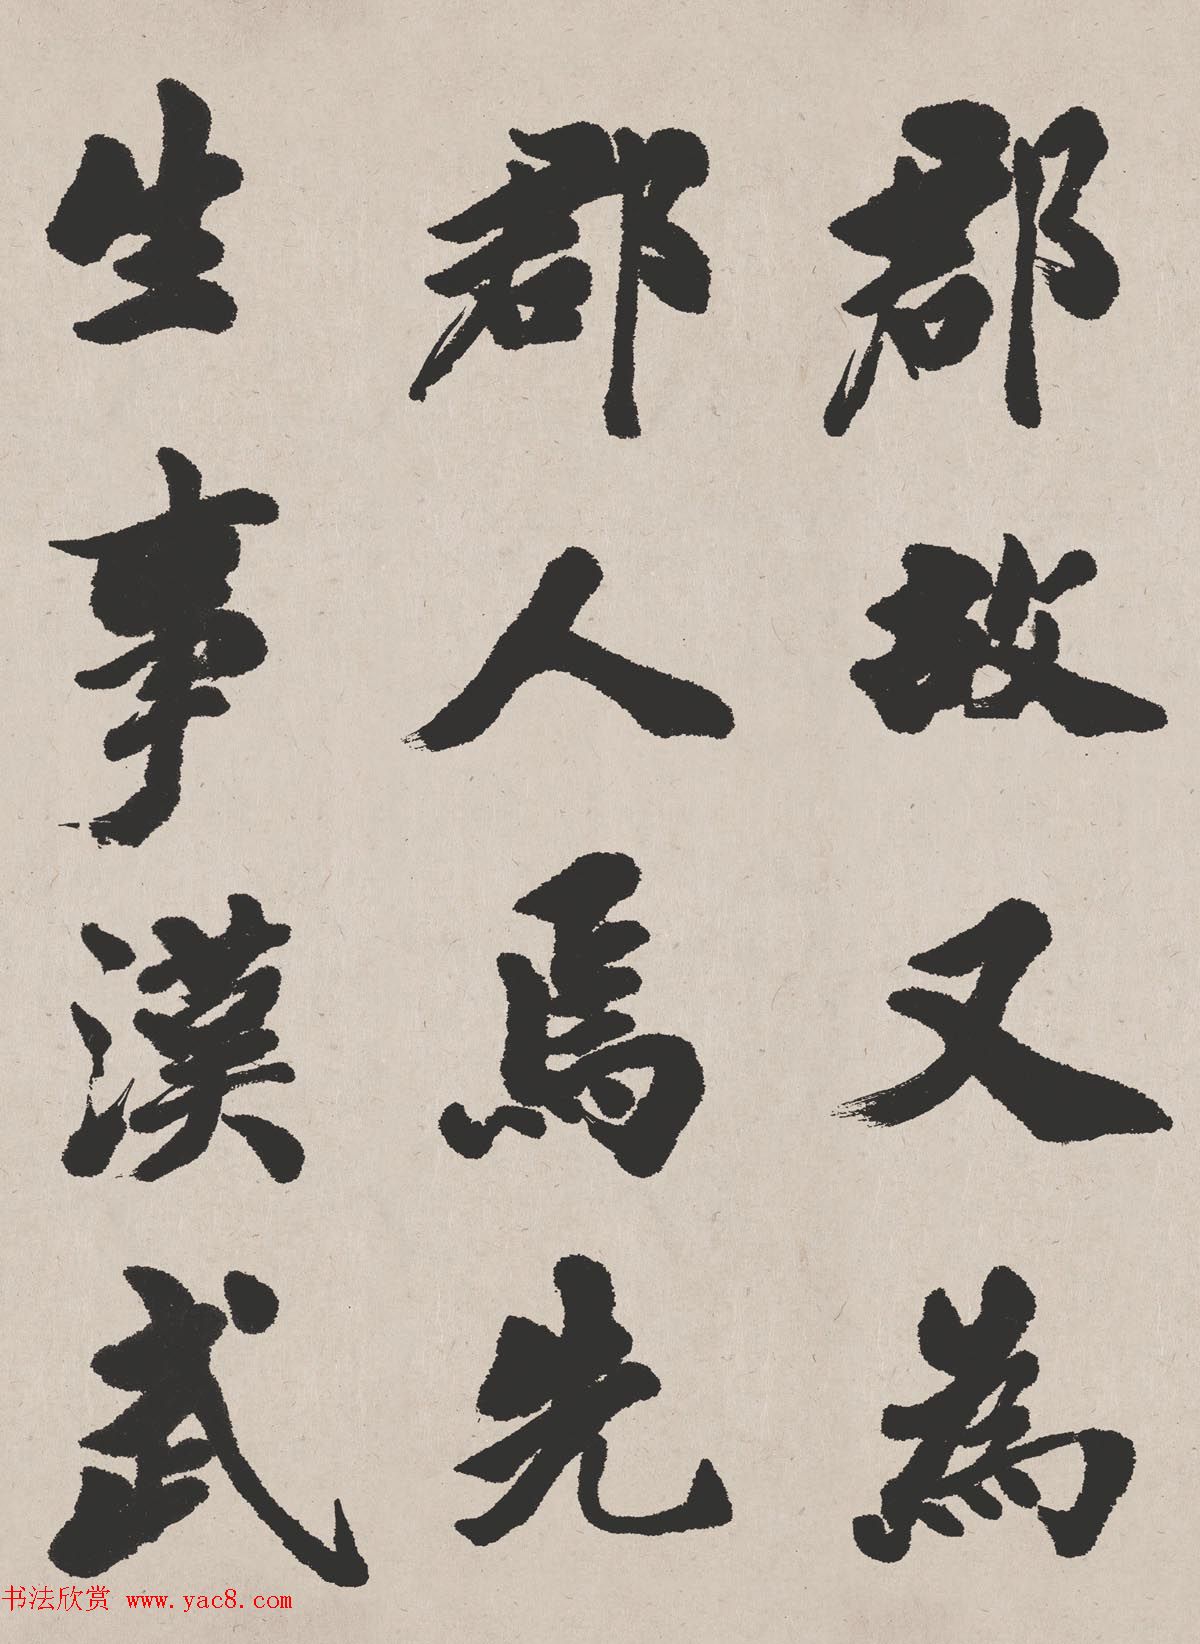 郡故又為
郡人焉先
生事漢武
书法欣赏 www.yac8.com